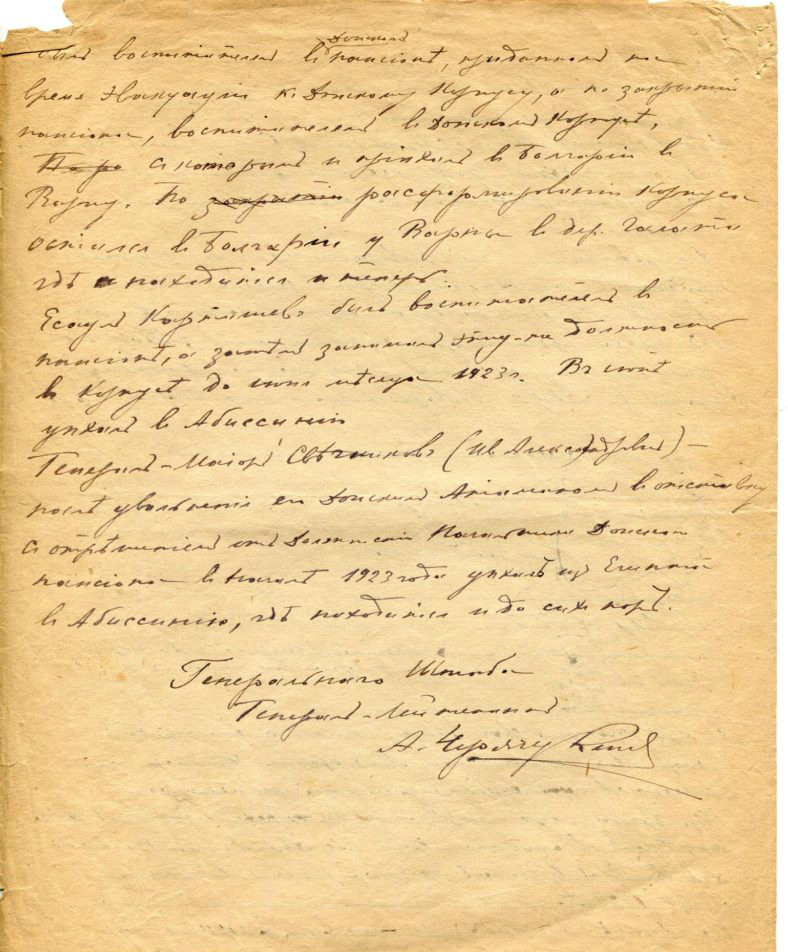 Донской
былъ воспитателемъ въ пансіонѣ, приданномъ на
время эвакуаціи къ Донскому Корпусу, а по закрытіи
пансіона, воспитателемъ въ Донскомъ Корпусѣ,
съ которымъ и пріѣхалъ въ Болгарію въ
Варну. По закрытіи расформированіи Корпуса
остался въ Болгаріи у Варны въ дер. Галата
гдѣ и находится и теперь.
Есаулъ былъ воспитателемъ въ
пансіонѣ, а затѣмъ занималъ должность
въ Корпусѣ до мѣсяца 1923 г. Въ
уѣхалъ въ Абиссинію
Генералъ-Маіоръ Свѣчниковъ (Ив Александровичъ) –
послѣ увольненія его Донскимъ Атаманомъ въ отставку
съ отрѣшеніемъ отъ должности Начальника Донского
пансіона въ началѣ 1923 года уѣхалъ изъ Египта
въ Абиссинію, гдѣ находится и до сихъ поръ.
Генеральнаго Штаба
Генералъ-Лейтенантъ
А. Черячукинъ